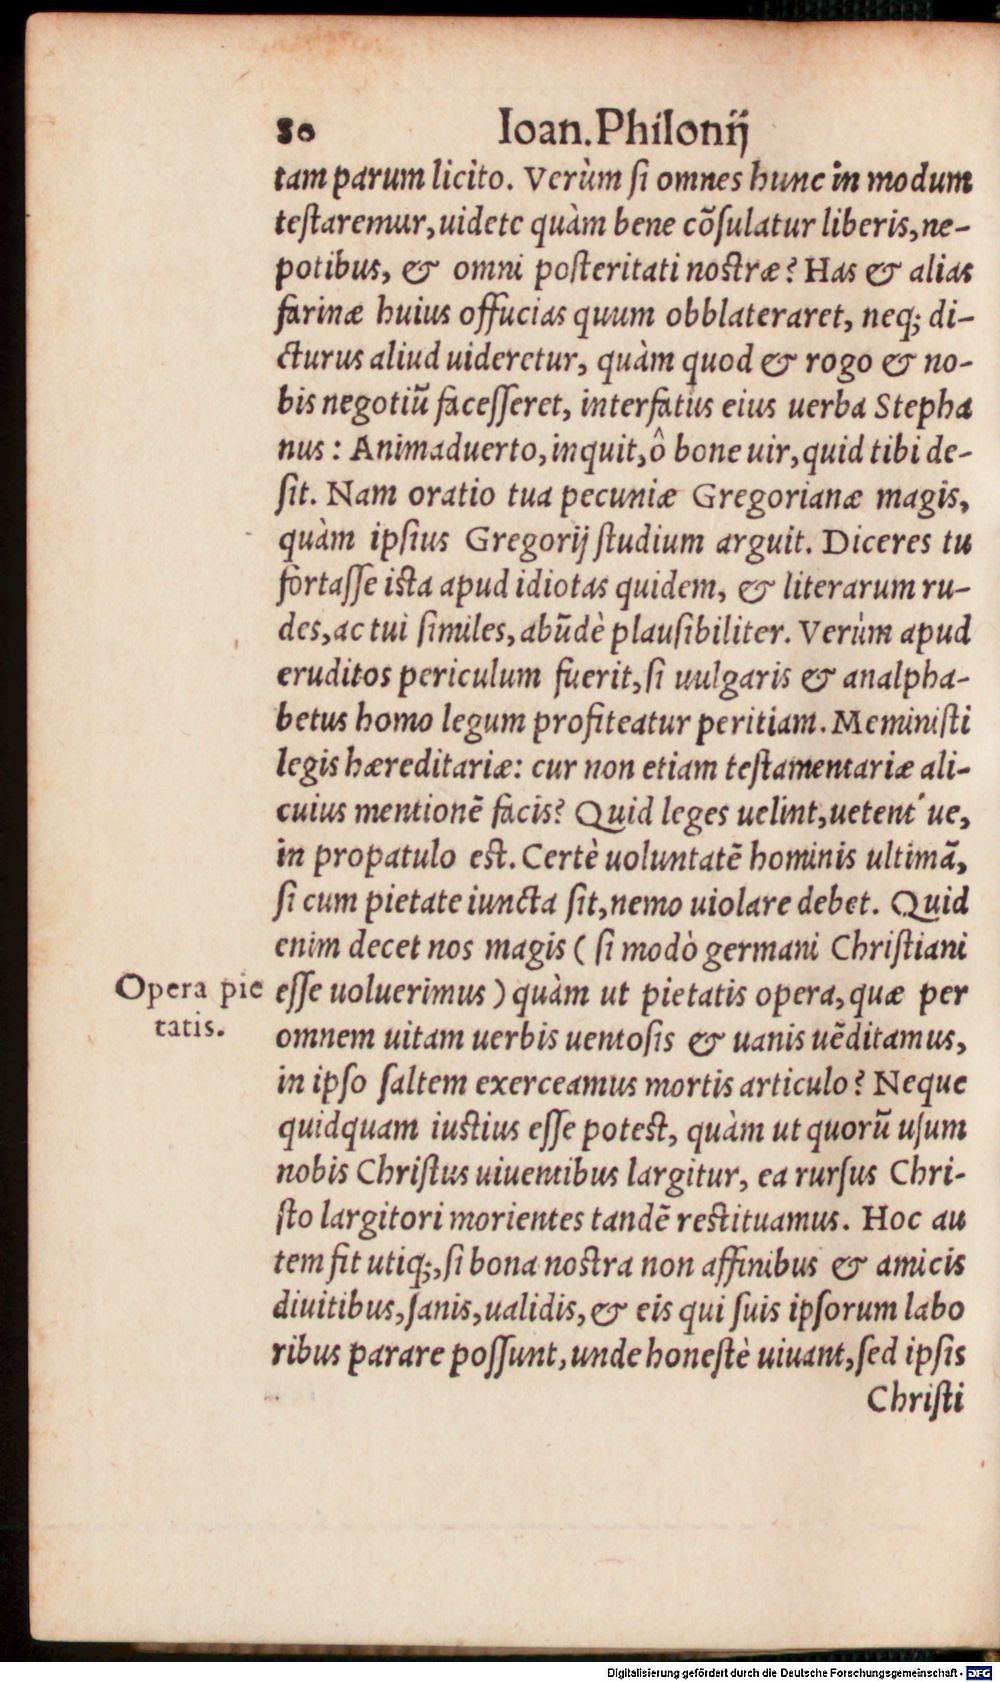 80 Ioan. Philonij
tam parum licito. Verùm si omnes hunc in modum
testaremur, uidete quàm bene cõsulatur liberis, ne-
potibus, & omni posteritati nostræ? Has & alias
farinæ huius offucias quum obblateraret, neq; di-
cturus aliud uideretur, quàm quod & rogo & no-
bis negotiũ facesseret, interfatus eius uerba Stepha
nus: Animaduerto, inquit, ô bone uir, quid tibi de-
sit. Nam oratio tua pecuniæ Gregorianæ magis,
quàm ipsius Gregorij studium arguit. Diceres tu
fortasse ista apud idiotas quidem, & literarum ru-
des, ac tui similes, abũdè plausibiliter. Verùm apud
eruditos periculum fuerit, si uulgaris & analpha-
betus homo legum profiteatur peritiam. Meministi
legis hæreditariæ: cur non etiam testamentariæ ali-
cuius mentionẽ facis? Quid leges uelint, uetent´ue,
in propatulo est. Certè uoluntatẽ hominis ultimã,
si cum pietate iuncta sit, nemo uiolare debet. Quid
enim decet nos magis ( si modò germani Christiani
Opera pie
tatis.
esse uoluerimus ) quàm ut pietatis opera, quæ per
omnem uitam uerbis uentosis & uanis uẽditamus,
in ipso saltem exerceamus mortis articulo? Neque
quidquam iustius esse potest, quàm ut quorũ usum
nobis Christus uiuentibus largitur, ea rursus Chri-
sto largitori morientes tandẽ restituamus. Hoc au
tem fit utiq;, si bona nostra non affinibus & amicis
diuitibus, sanis, ualidis, & eis qui suis ipsorum labo
ribus parare possunt, unde honestè uiuant, sed ipsis
Christi
Digitalisierung gefördert durch die Deutsche Forschungsgemeinschaft - DFG